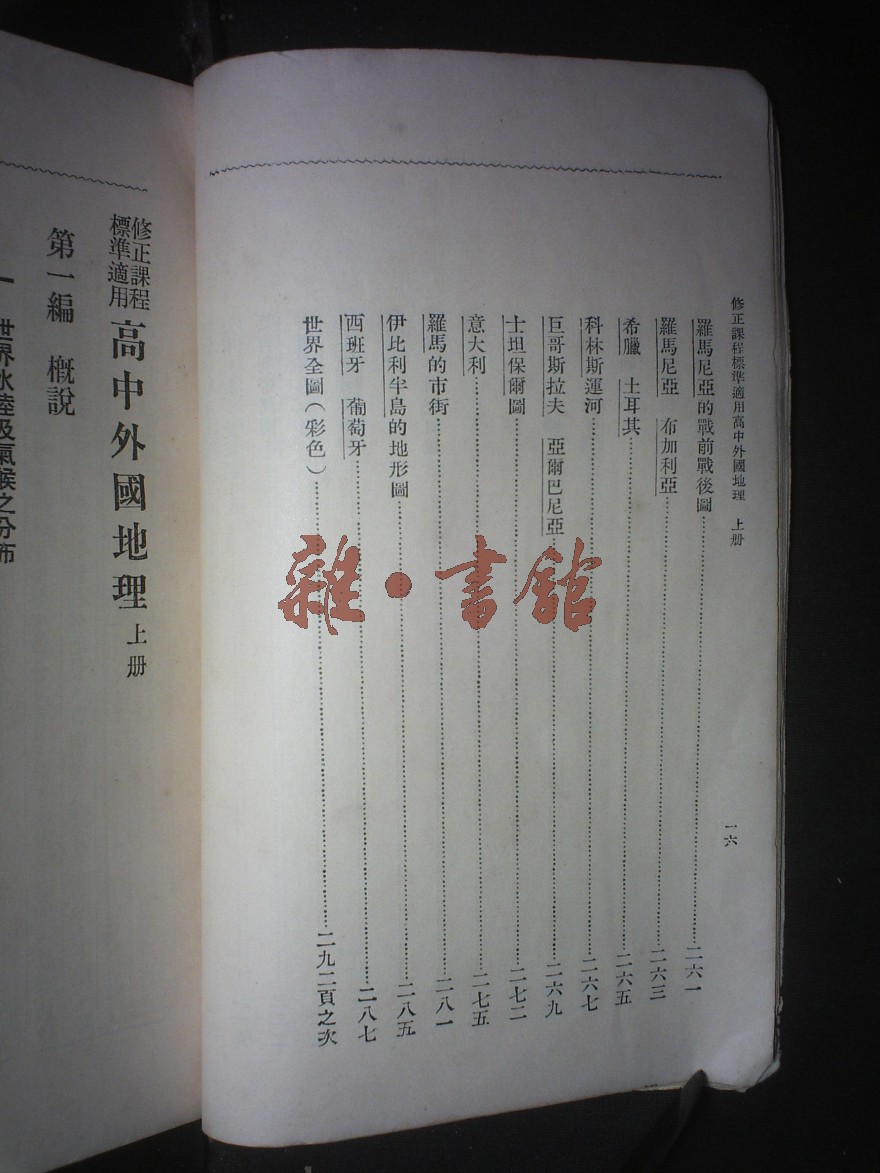 修正課程標準適用高中外國地理 上册
一六
羅馬尼亞的戰前戰後圖……二六一
羅馬尼亞 布加利亞……二六三
希臘 土耳其……二六五
科林斯運河……二六七
巨哥斯拉夫 亞爾巴尼亞……二六九
士坦保爾圖……二七二
意大利……二七五
羅馬的市街……二八一
伊比利半島的地形圖……二八五
西班牙 葡萄牙……二八七
世界全圖（彩色）……二九二頁之次
修正課程
標準適用
高中外國地理 上册
第一編 概說
一 世界水陸及氣候之分布
雜·書館